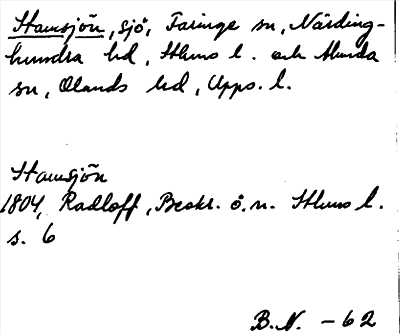 Hamsjön, sjö, Faringe sn, Närding-
hundra hd, Sthms l. och Alunda
sn, Olands hd, Upps. l.
Hamsjön
1804, Radloff, Beskr. ö. n. Sthms l.
s. 6
B.N. - 62